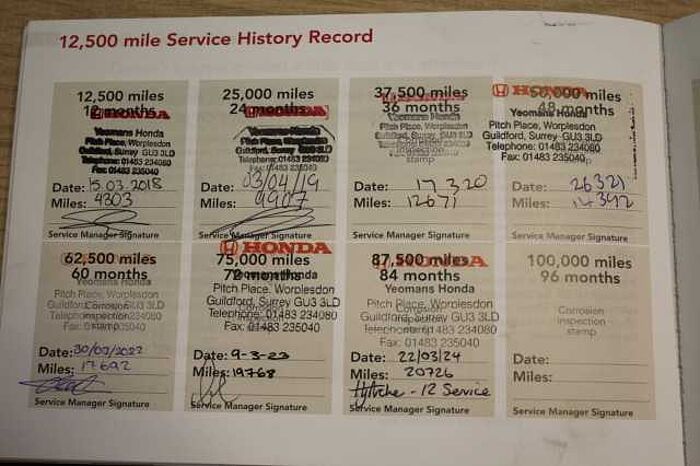 12,500 mile Service History Record
12,500 miles
12 months
HONDA
Yeomans Honda
Pitch Place, Worplesdon
Guildford, Surrey GU3 3LD
Telephone: 01483 234080
Fax: 01483 235040
Date: 15.03.2018
Miles: 4303
Service Manager Signature
25,000 miles
24 months
HONDA
Yeomans Honda
Pitch Place, Worplesdon
Guildford, Surrey GU3 3LD
Telephone: 01483 234080
Fax: 01483 235040
Date: 03/04/19
Miles: 9907
Service Manager Signature
37,500 miles
36 months
Yeomans Honda
Pitch Place, Worplesdon
Guildford, Surrey GU3 3LD
inspection
stamp
Date: 17 3 20
Miles: 12671
Service Manager Signature
50,000 miles
48 months
HONDA
Yeomans Honda
Pitch Place, Worplesdon
Guildford, Surrey GU3 3LD
Telephone: 01483 234080
Fax: 01483 235040
Date: 26 3 21
Miles: 14342
Service Manager Signature
62,500 miles
60 months
Yeomans Honda
Pitch Place, Worplesdon
Guildford, Surrey GU3 3LD
Corrosion
inspection
stamp
Date: 30/03/2022
Miles: 17692
Service Manager Signature
75,000 miles
72 months
HONDA
Yeomans Honda
Pitch Place, Worplesdon
Guildford, Surrey GU3 3LD
Telephone: 01483 234080
Fax: 01483 235040
Date: 9-3-23
Miles: 19768
Service Manager Signature
87,500 miles
84 months
HONDA
Yeomans Honda
Pitch Place, Worplesdon
Guildford, Surrey GU3 3LD
Telephone: 01483 234080
Fax: 01483 235040
Corrosion
inspection
stamp
Date: 22/03/24
Miles: 20726
- 12 Service
Service Manager Signature
100,000 miles
96 months
Corrosion
inspection
stamp
Date:
Miles:
Service Manager Signature